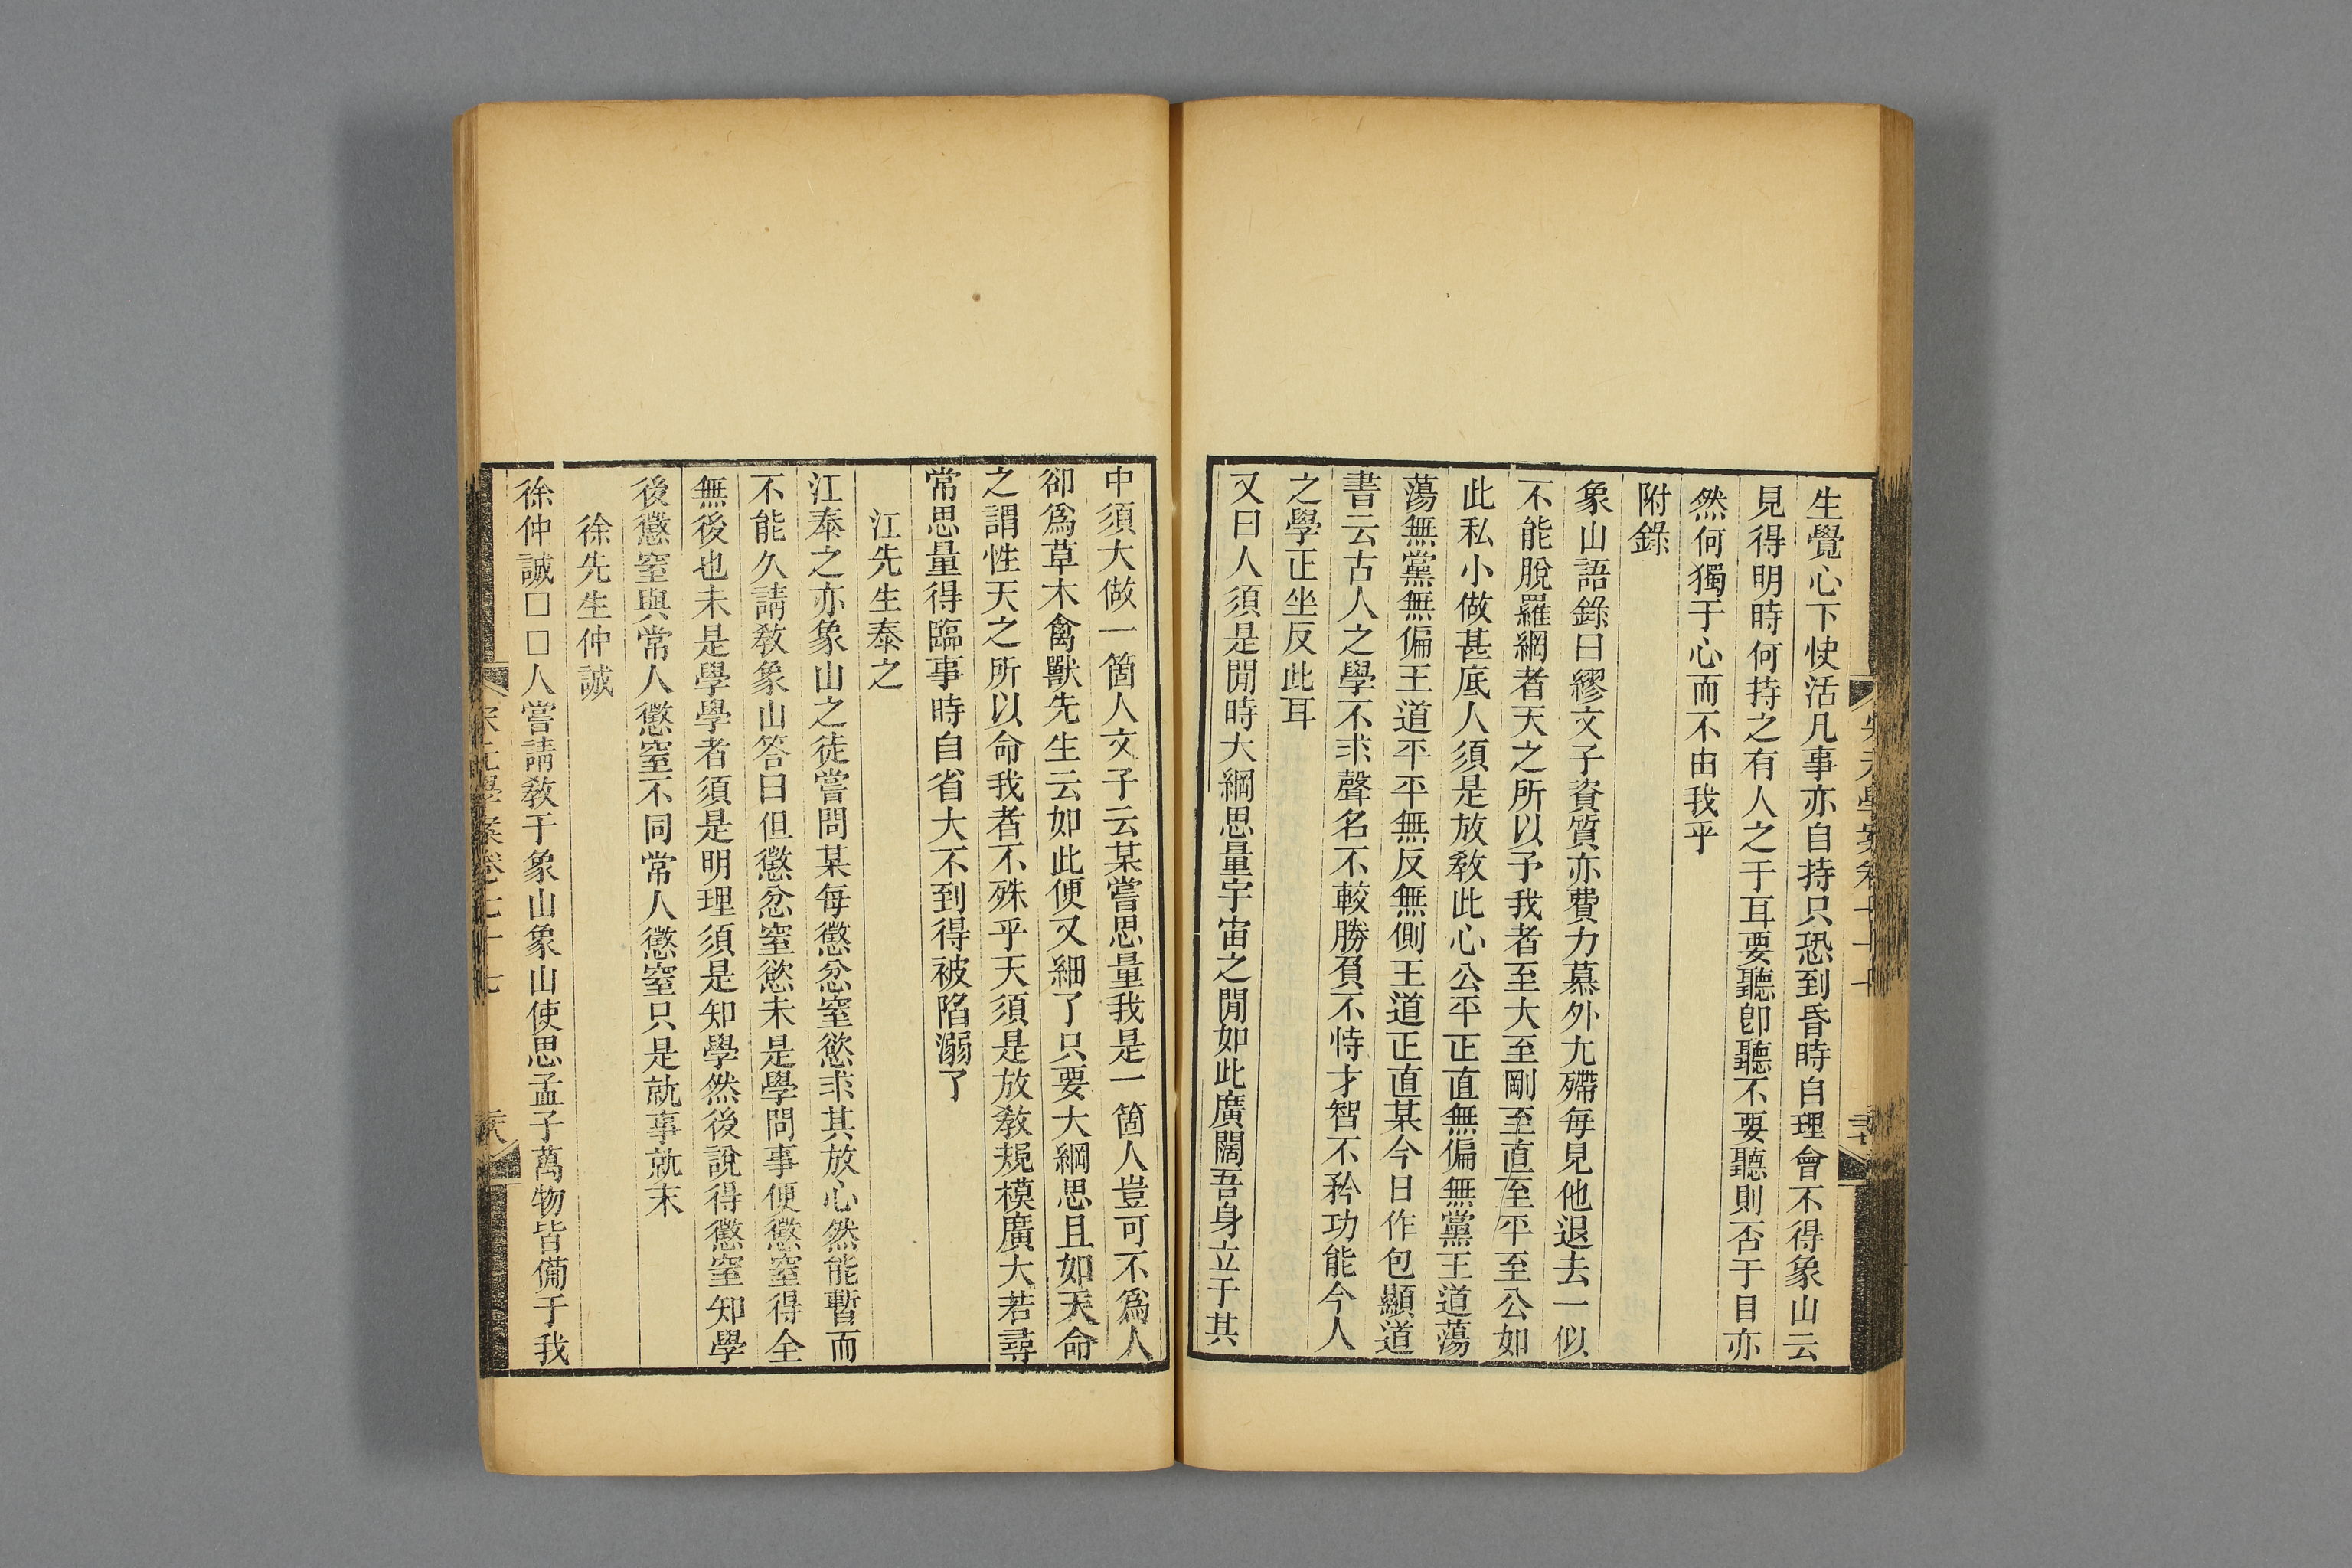 生覺心下快活凡事亦自持只恐到昏時自理會不得象山云
見得明時何持之有人之于耳要聽卽聽不要聽則否于目亦
然何獨于心而不由我乎
附錄
象山語錄曰繆文子資質亦費力慕外尢殢每見他退去一似
不能脫羅網者天之所以予我者至大至剛至直至平至公如
此私小做甚底人須是放敎此心公平正直無偏無黨王道蕩
蕩無黨無偏王道平平無反無側王道正直某今日作包顯道
書云古人之學不求聲名不較勝負不恃才智不矜功能今人
之學正坐反此耳
又曰人須是閒時大綱思量宇宙之閒如此廣闊吾身立于其
中須大做一箇人文子云某嘗思量我是一箇人豈可不爲人
卻爲草木禽獸先生云如此便又細了只要大綱思且如天命
之謂性天之所以命我者不殊乎天須是放敎規模廣大若尋
常思量得臨事時自省大不到得被陷溺了
江先生泰之
江泰之亦象山之徒嘗問某每懲忿窒慾求其放心然能暫而
不能久請敎象山答曰但懲忿窒慾未是學問事便懲窒得全
無後也未是學學者須是明理須是知學然後說得懲窒知學
後懲窒與常人懲窒不同常人懲窒只是就事就末
徐先生仲誠
徐仲誠□□人嘗請敎于象山象山使思孟子萬物皆備于我
宋元學案卷七十七